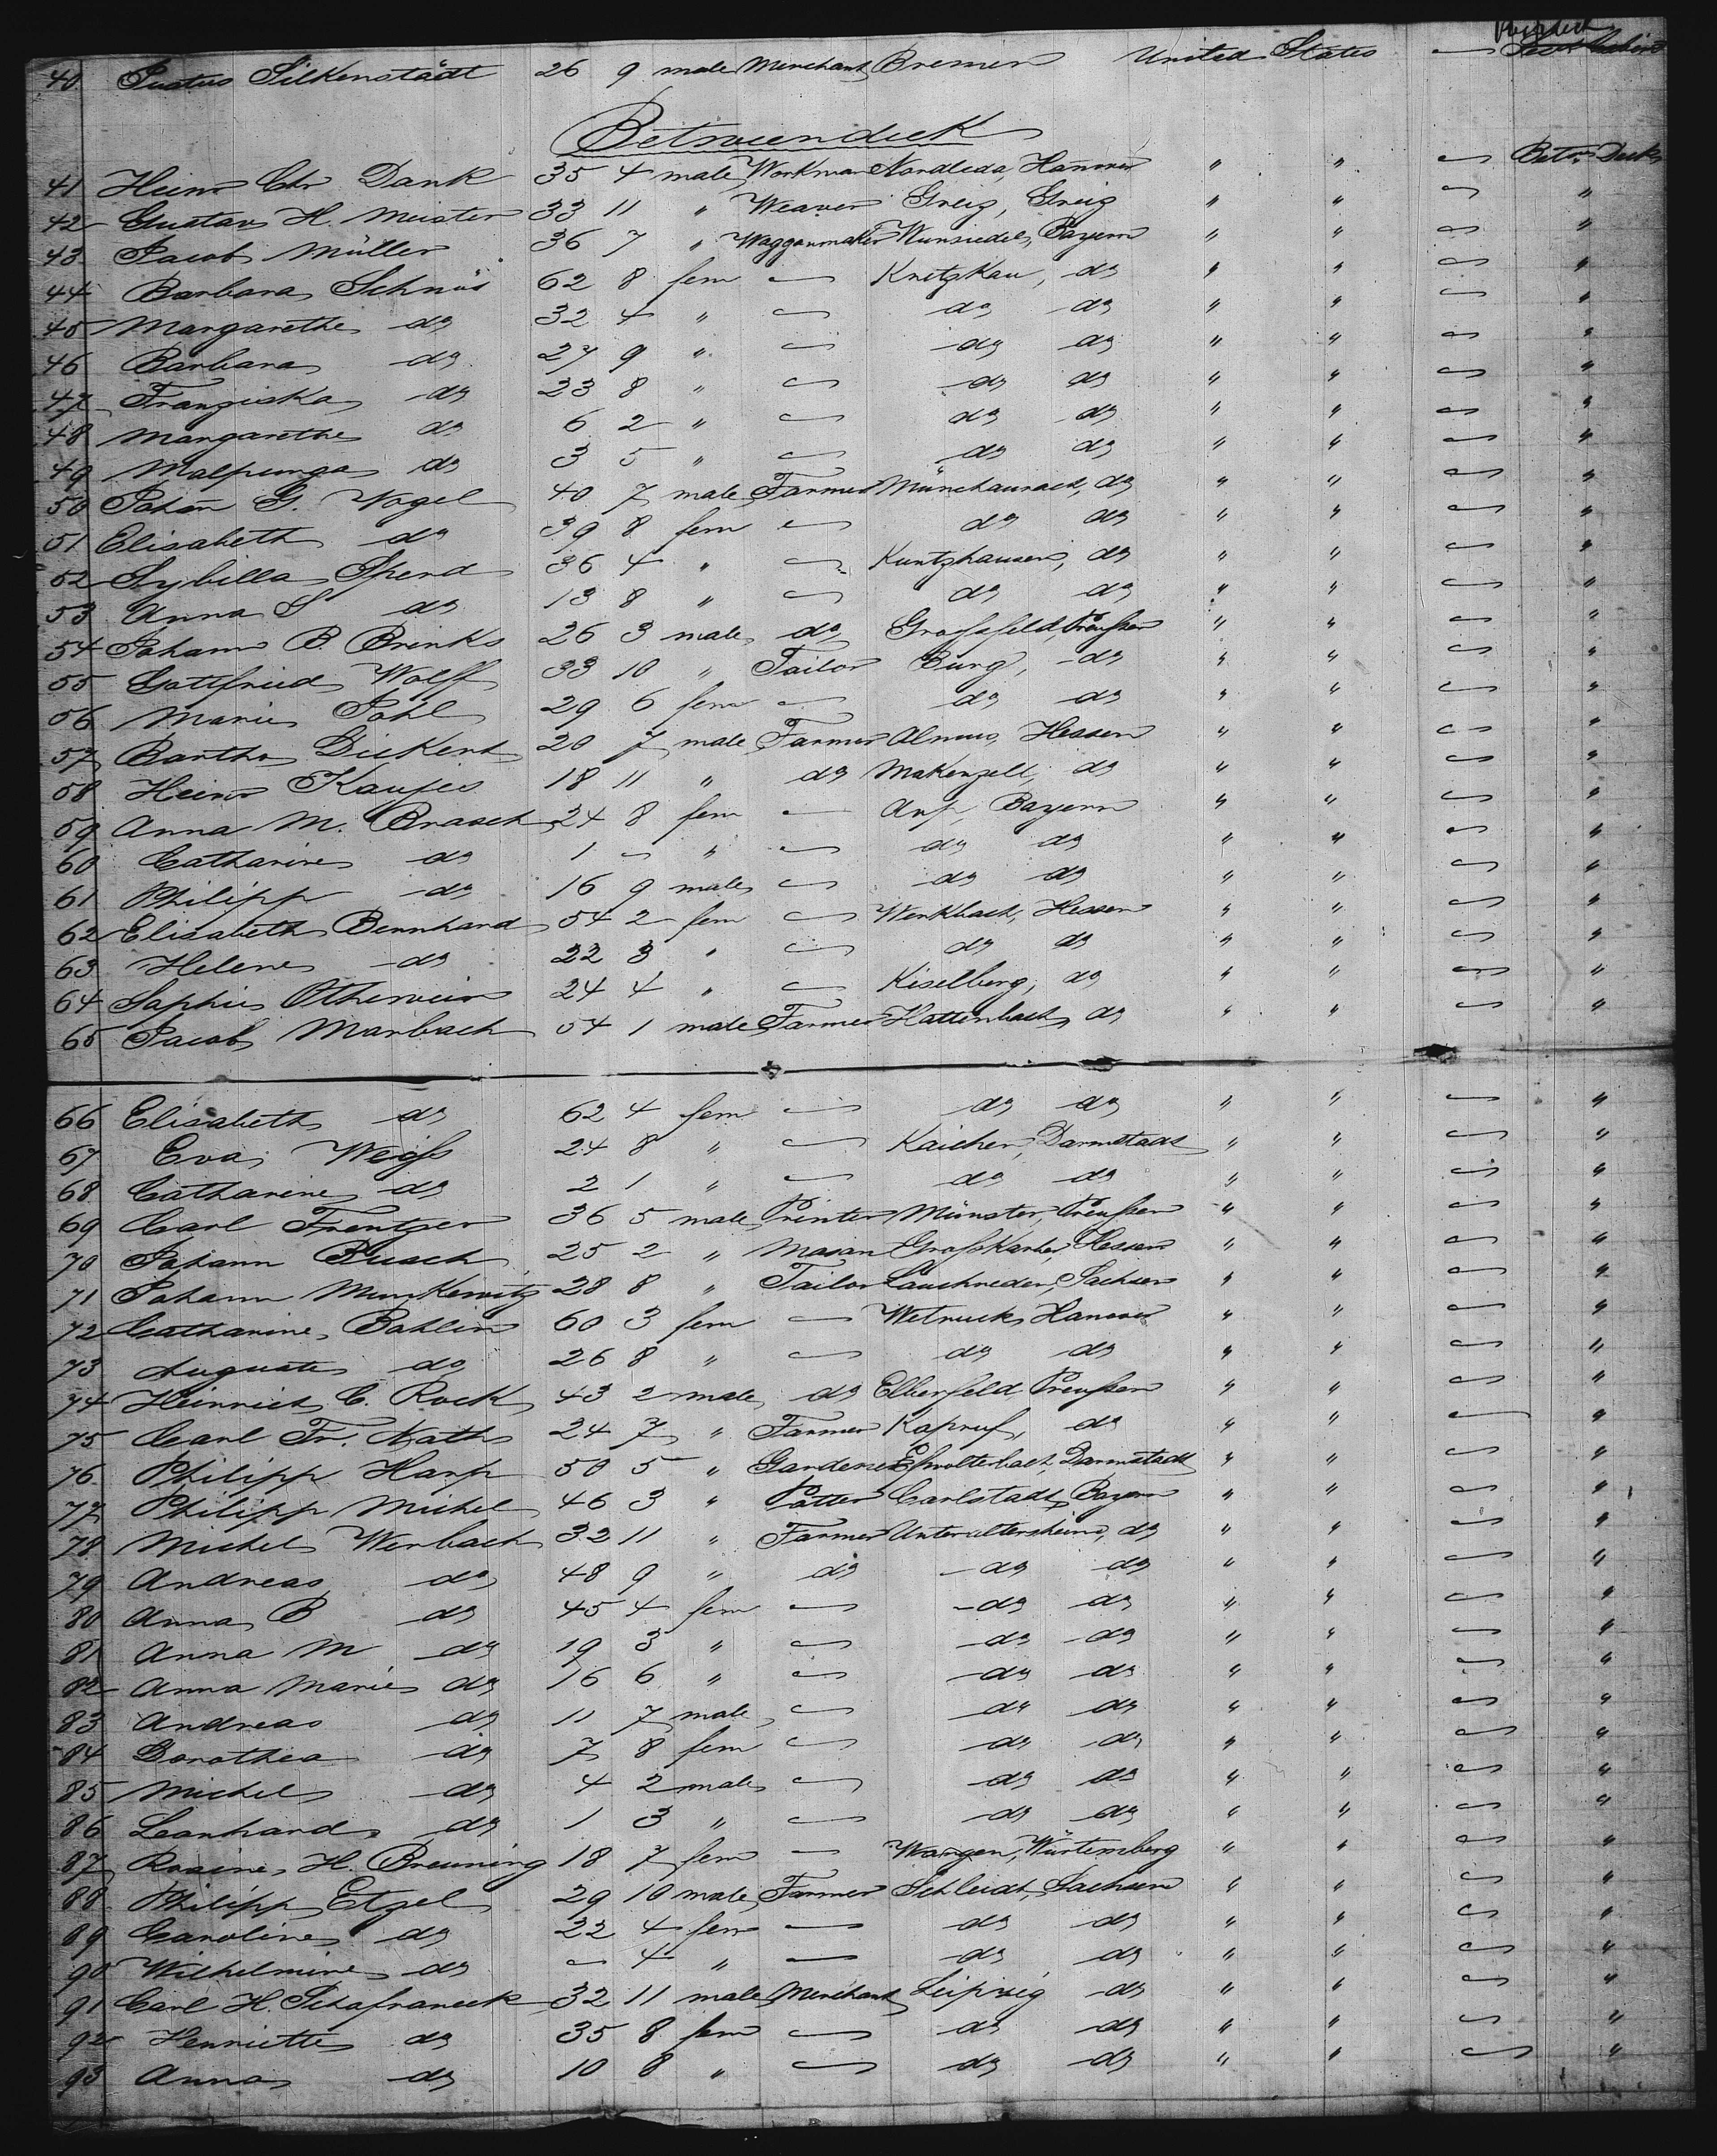 40 Justus Silkenstädt 26 9 male Merchant Bremen United States —
Betweendeck
41 Heinr Chr Dank 35 4 male Workman Nordleda, Hannover " " — Betw. Deck
42 Gustav H. Meister 33 11 " Weaver Greiz, Greiz " " — "
43 Jacob Müller 36 7 " Waggonmaker Wunsiedel, Bayern " " — "
44 Barbara Schnös 62 8 fem — Knetzkau, do " " — "
45 Margarethe do 32 4 " — do do " " — "
46 Barbara do 27 9 " — do do " " — "
47 Franziska do 23 8 " — do do " " — "
48 Margarethe do 6 2 " — do do " " — "
49 Malpunga do 3 5 " — do do " " — "
50 Johan G. Vogel 40 7 male Farmer Münchaurach, do " " — "
51 Elisabeth do 39 8 fem — do do " " — "
52 Sybilla Spend 36 4 " — Kuntzhausen, do " " — "
53 Anna S do 13 8 " — do do " " — "
54 Johann B. Brinks 26 3 male do Grossfeld, Preußen " " — "
55 Gottfried Wolff 33 10 " Tailor Burg, do " " — "
56 Marie Pohl 29 6 fem — do do " " — "
57 Bartho Dickert 20 7 male Farmer Almus, Hessen " " — "
58 Heinr Kaupes 18 11 " do Makenzell, do " " — "
59 Anna M. Brasch 24 8 fem — Bayern " " — "
60 Catharine do 1 — " — do do " " — "
61 Philipp do 16 9 male — do do " " — "
62 Elisabeth Bernhard 54 2 fem — Wenkbach, Hessen " " — "
63 Helene do 22 3 " — do do " " — "
64 Sophie Otherwein 24 4 " — Kiselberg, do " " — "
65 Jacob Marbach 54 1 male Farmer Hattenbach, do " " — "
66 Elisabeth do 62 4 fem — do do " " — "
67 Eva Weiß 24 8 " — Kaichen, Darmstadt " " — "
68 Catharine do 2 1 " — do do " " — "
69 Carl Frentzer 36 5 male Printer Münster, Preußen " " — "
70 Johann Busch 25 2 " Mason Großkarben, Hessen " " — "
71 Johann Munkewitz 28 8 " Tailor Lauchreden, Sachsen " " — "
72 Catharine Bohlin 60 3 fem — Hanover " " — "
73 Auguste do 26 8 " — do do " " — "
74 Heinrich C. Rock 43 2 male do Elberfeld, Preußen " " — "
75 Carl Fr. Nath 24 7 " Farmer do " " — "
76 Philipp Harp 50 5 " Gardener Darmstadt " " — "
77 Philipp Michel 46 3 " Potter Carlstadt, Bayern " " — "
78 Michel Werbach 32 11 " Farmer Unteraltersheim, do " " — "
79 Andreas do 48 9 " do do do " " — "
80 Anna B do 45 4 fem — do do " " — "
81 Anna M do 19 3 " — do do " " — "
82 Anna Marie do 16 6 " — do do " " — "
83 Andreas do 11 7 male — do do " " — "
84 Dorothea do 7 8 fem — do do " " — "
85 Michel do 4 2 male — do do " " — "
86 Leonhard do 1 3 " — do do " " — "
87 Rosine H. Breuning 18 7 fem — Wangen, Würtemberg " " — "
88 Philipp Etzel 29 10 male Farmer Schleidt, Sachsen " " — "
89 Caroline do 22 4 fem — do do " " — "
90 Wilhelmine do — 4 " — do do " " — "
91 Carl H. Schafraneck 32 11 male Merchant Leipzig do " " — "
92 Henriette do 35 8 fem — do do " " — "
93 Anna do 10 8 " — do do " " — "